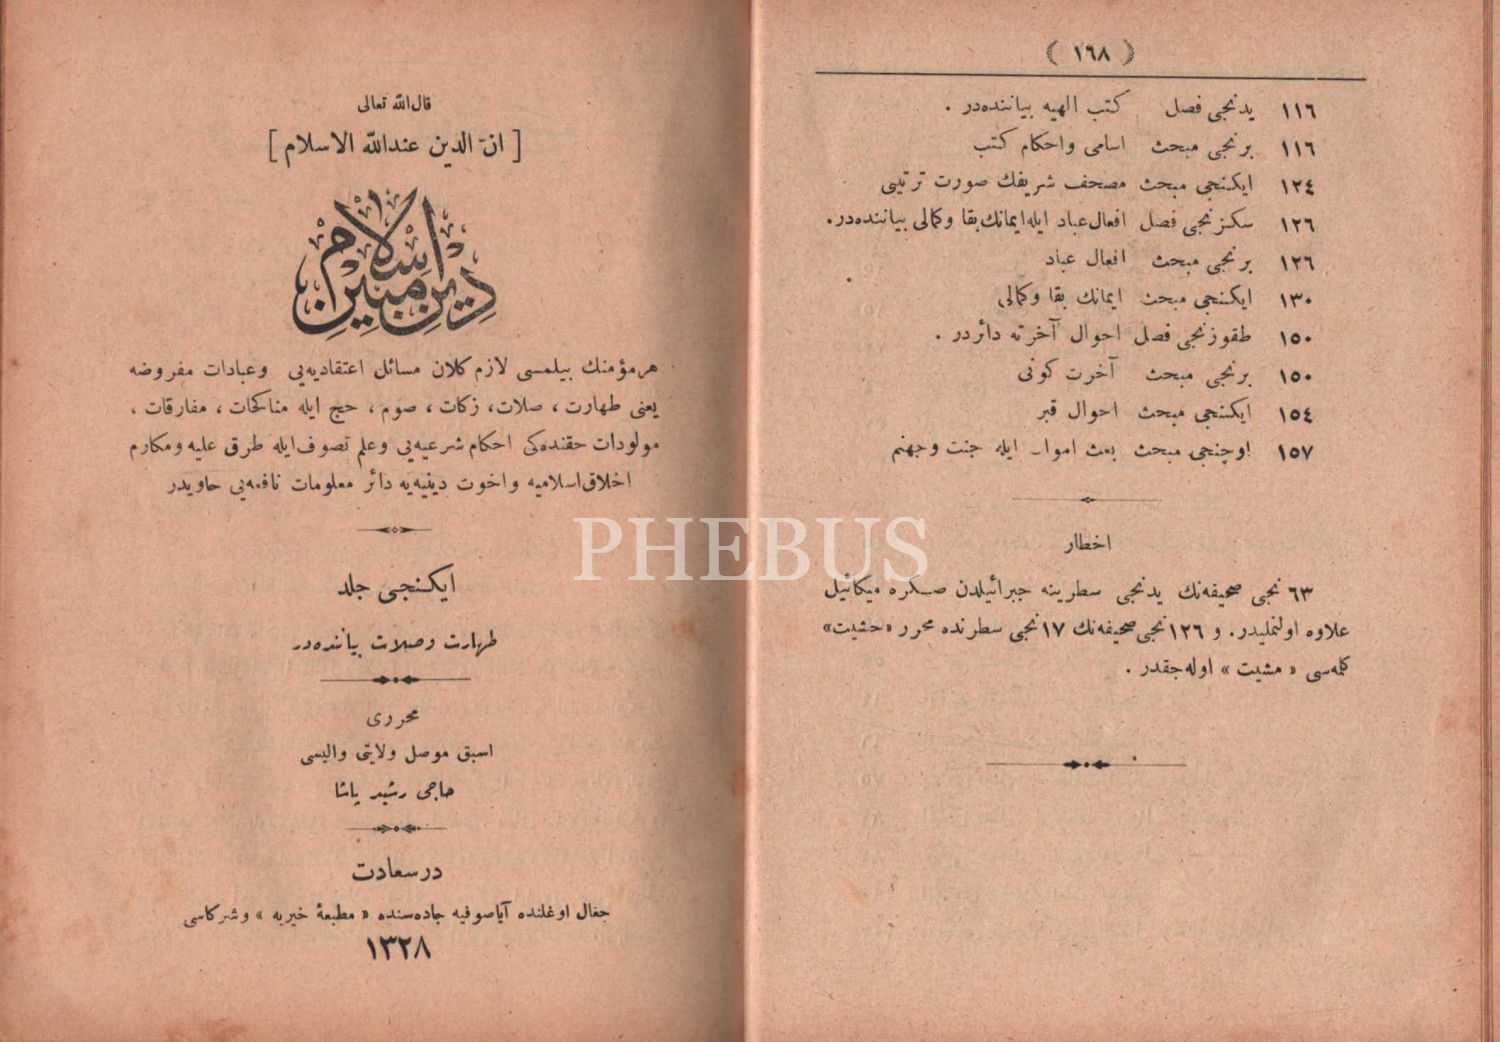 ( ١٦٨ )
١١٦ يدنجى فصل كتب الهيه بياننده‌در .
١١٦ برنجى مبحث اسامى واحكام كتب
١٢٤ ايكنجى مبحث مصحف شريفك صورت ترتيبى
١٢٦ سكزنجى فصل افعال عباد ايله ايمانك بقا وكمالى بياننده‌در.
١٢٦ برنجى مبحث افعال عباد
١٣٠ ايكنجى مبحث ايمانك بقا وكمالى
١٥٠ طقوزنجى فصل احوال آخرته دائردر .
١٥٠ برنجى مبحث آخرت كونى
١٥٤ ايكنجى مبحث احوال قبر
١٥٧ اوچنجى مبحث بعث اموات ايله جنت وجهنم
اخطار
٦٣ نجى صحيفه‌نك يدنجى سطرينه جبرائيلدن صكره ميكائيل
علاوه اولنمليدر. و ١٢٦ نجى صحيفه‌نك ١٧ نجى سطرنده محرر «حشيت»
كلمه‌سى « مشيت » اوله‌جقدر .
قال الله تعالى
[ ان الدين عندالله الاسلام ]
دين مبين اسلام
هر مؤمنك بيلمسى لازم كلان مسائل اعتقاديه‌يى وعبادات مفروضه
يعنى طهارت ، صلات، زكات ، صوم ، حج ايله مناكحات ، مفارقات ،
مولودات حقنده‌كى احكام شرعيه‌يى وعلم تصوف ايله طرق عليه ومكارم
اخلاق اسلاميه واخوت دينيه‌يه دائر معلومات نافعه‌يى حاويدر
ايكنجى جلد
طهارت وصلات بياننده‌در
محررى
اسبق موصل ولايتى واليسى
حاجى رشيد پاشا
درسعادت
جغال اوغلنده آياصوفيه جاده‌سنده « مطبعهٔ خيريه » وشركاسى
١٣٢٨
PHEBUS